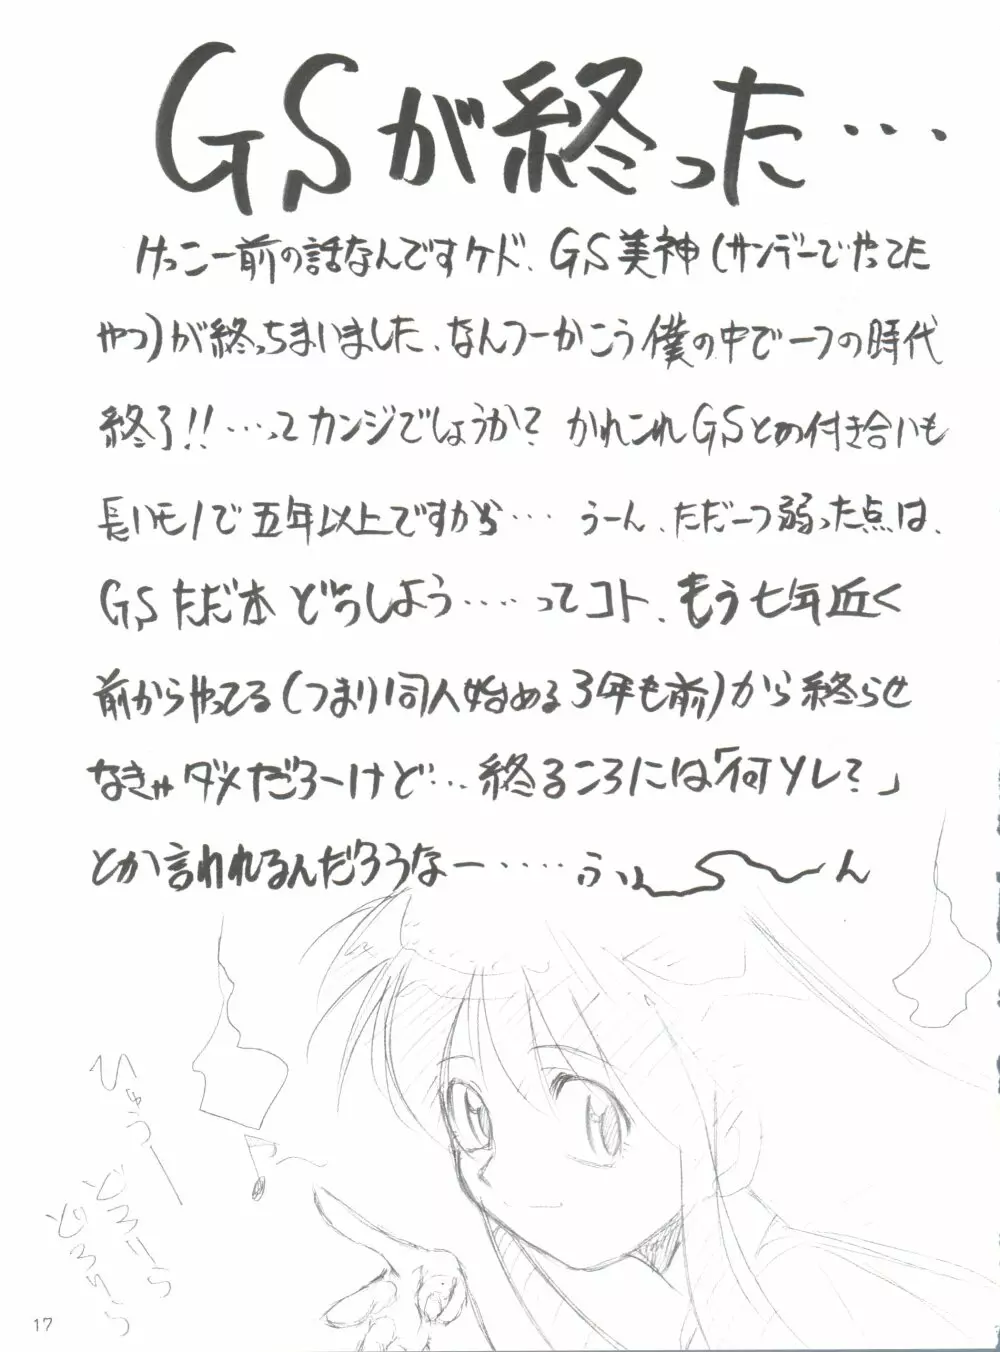 GSが終った…
けっこー前の話なんですケド、GS美神(サンデーでやってた
やつ)が終っちまいました、なんつーかこう僕の中で一つの時代
終了!!…ってカンジでしょうか? かれこれGSとの付き合いも
長いモノで五年以上ですから… うーん、ただ一つ弱った点は、
GSただ本 どうしよう‥‥ってコト、もう七年近く
前からやってる(つまり同人始める3年も前)から終らせ
なきゃダメだろーけど…終るころには「何ソレ?」
とか言われるんだろうなー‥‥‥ふぃ〜〜ん
ひゅうー
どろりら
どろりう
17